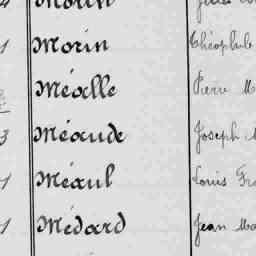 Morin
1 Morin Théophile
Méalle Pierre M
3 Méaude Joseph
1 Méaul Louis Fra
1 Médard Jean Ma